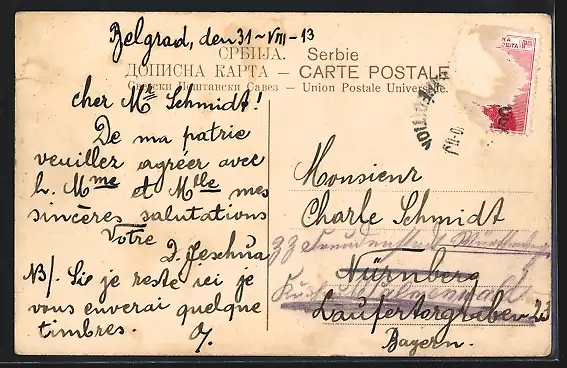 Belgrad, den 31-VIII-13
СРБИЈА. Serbie
ДОПИСНА КАРТА – CARTE POSTALE
Светски Поштански Савез – Union Postale Universelle.
cher Mr Schmidt!
De ma patrie
veuiller agréer avec
h. Mme et Mlle mes
sincères salutations
Votre
J. Jeschua
NB/. Sie je reste ici je
vous enverai quelque
timbres.
J.
Monsieur
Charle Schmidt
zz Freudenstadt Württemberg
Nürnberg
Laufertorgraben 23
Bayern.